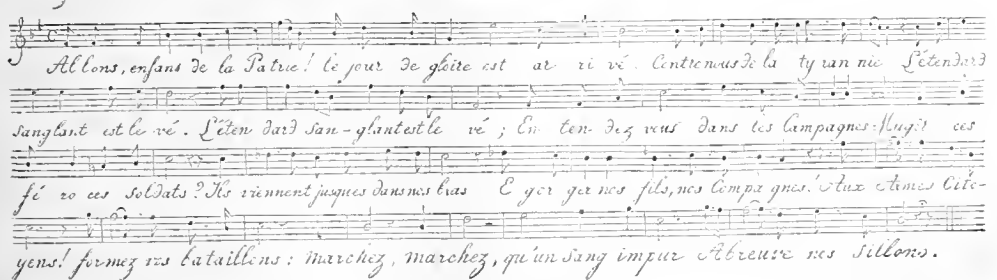 Allons, enfans de la Patrie! le jour de gloire est ar ri vé. Contre nous de la ty ran nie L'étendard
sanglant est le vé. L'éten dard san-glant est le vé; En ten-dez vous dans les Campagnes Mugir ces
fé ro ces soldats? Ils viennent jusques dans nos bras E gor ger nos fils, nos Compa gnes! Aux Armes Cito-
yens! formez vos bataillons: marchez, marchez, qu'un Sang impur Abreuve nos Sillons.